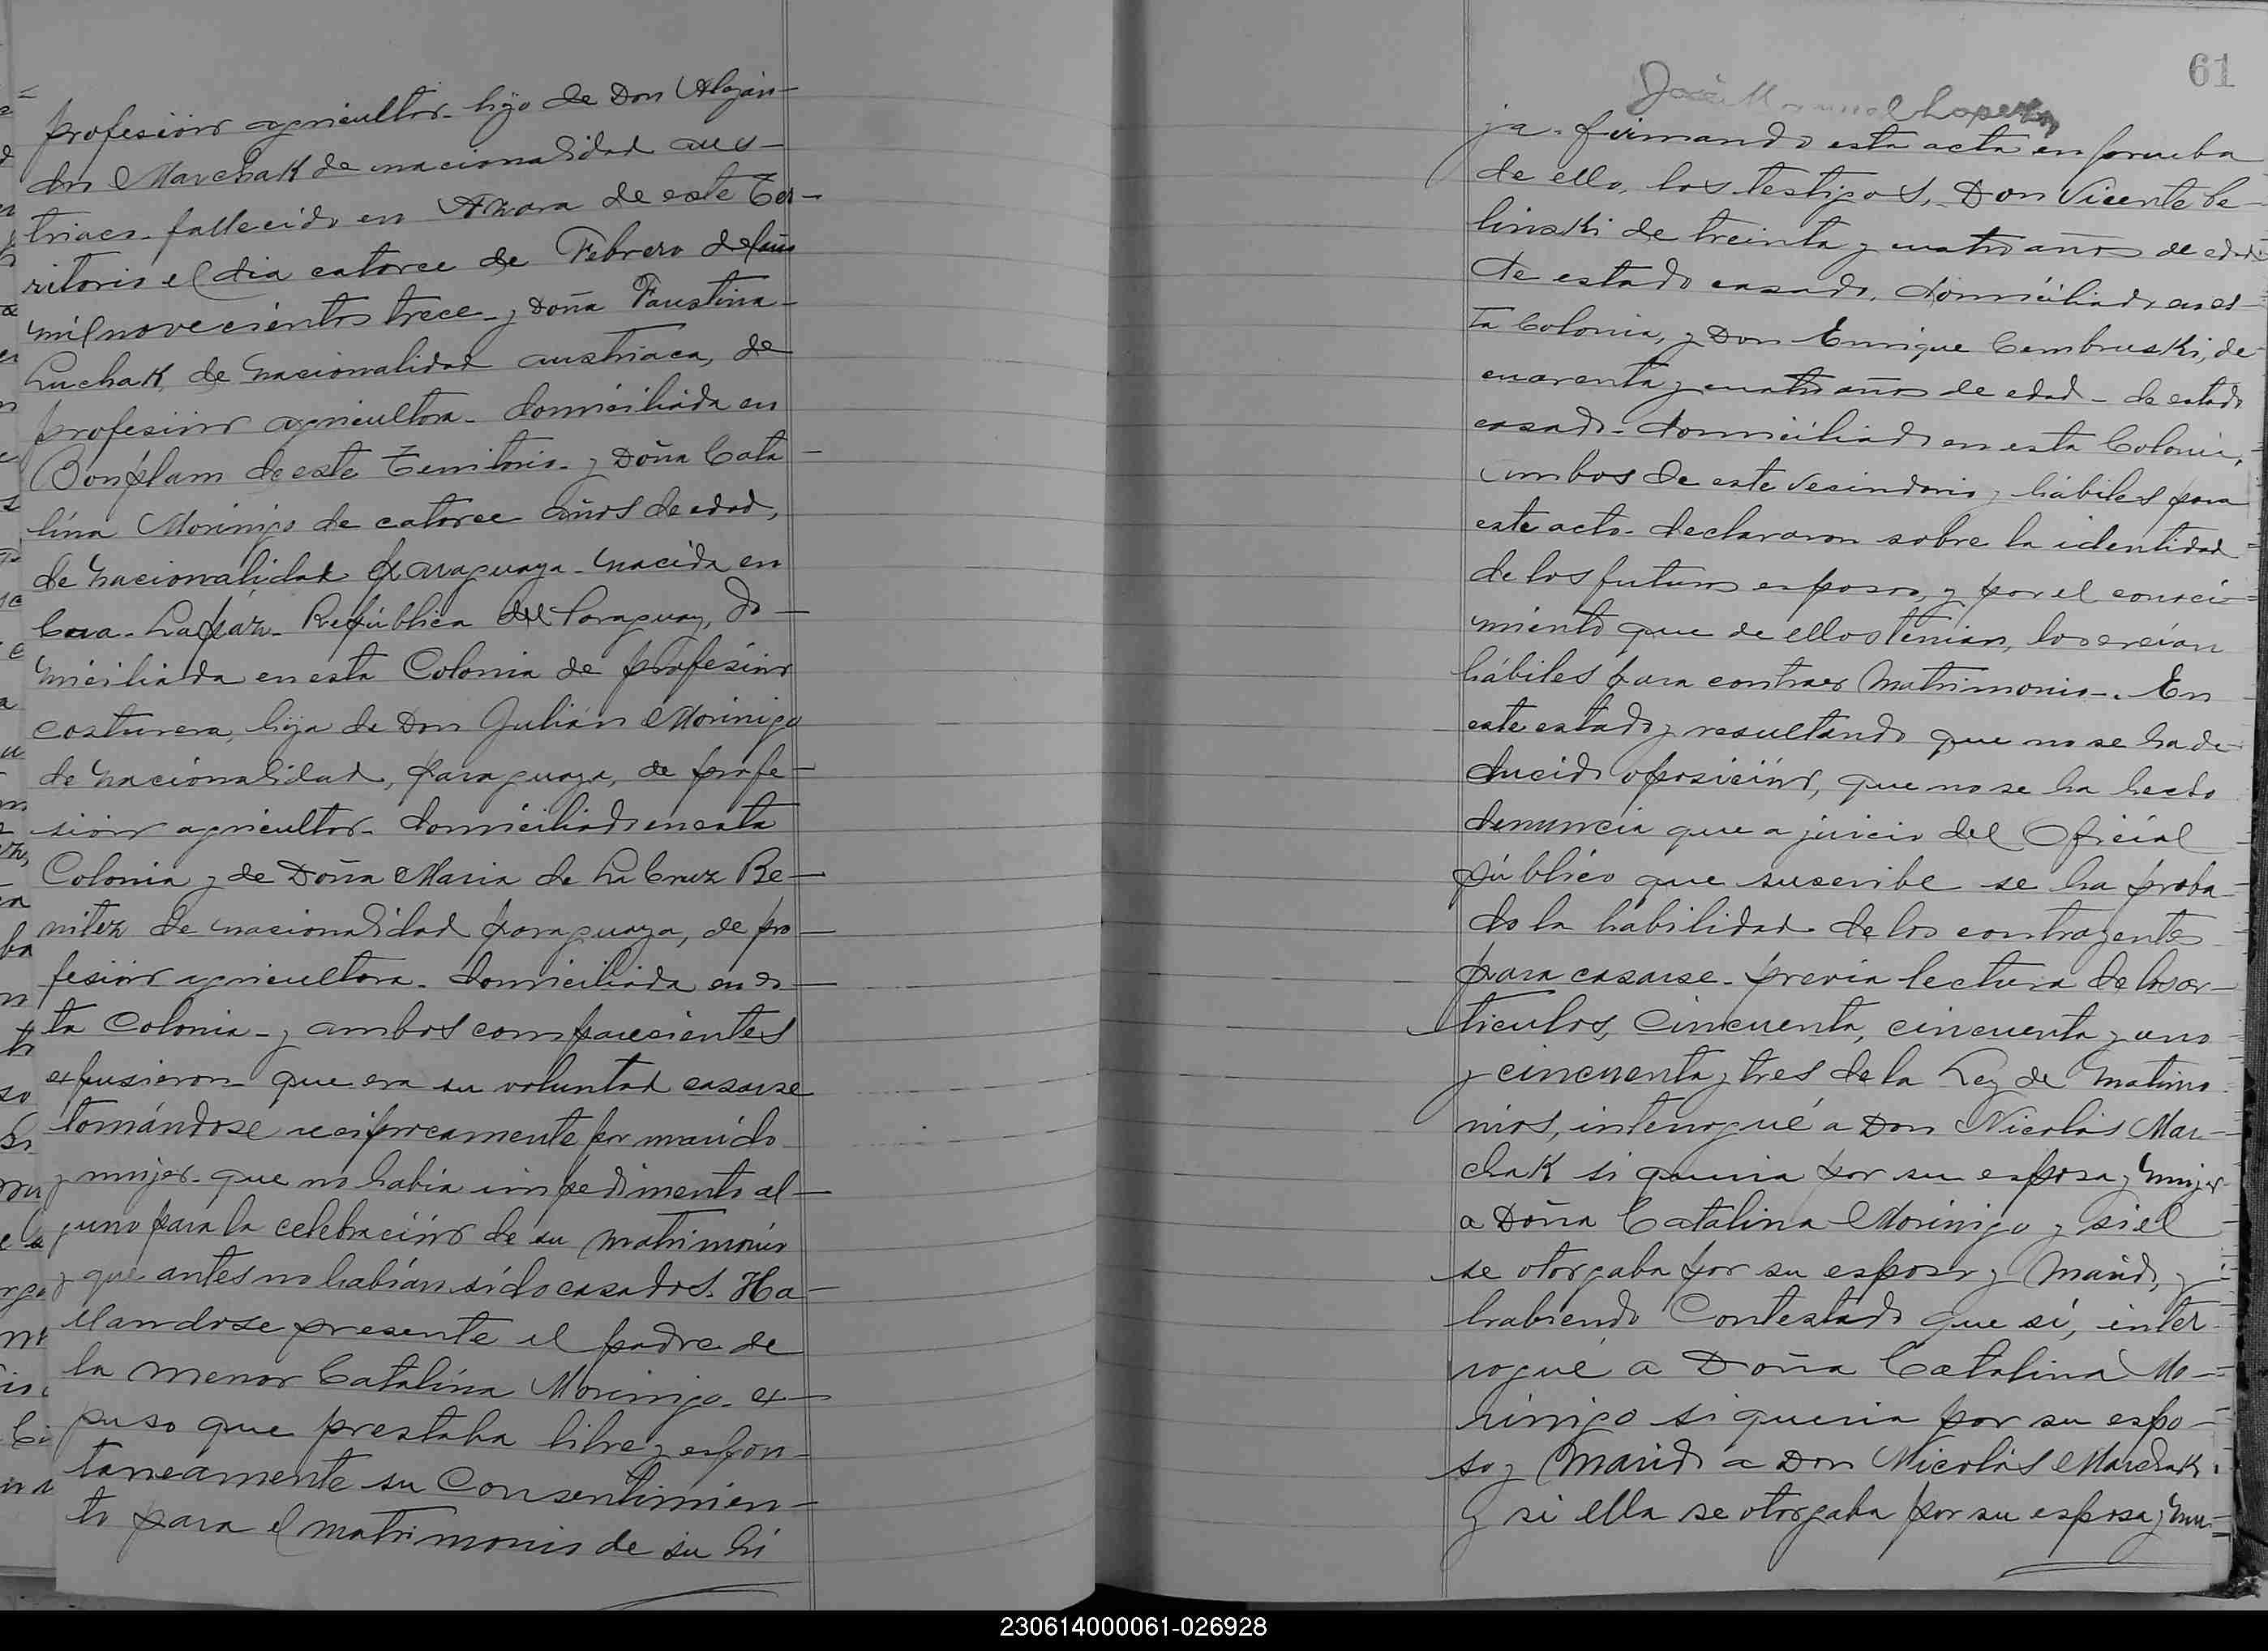 profesión agricultor. hijo de Don Alejan-
dro Marchak de nacionalidad aus-
triaco. fallecido en Azara de este Ter-
ritorio el dia catorce de Febrero del año
mil novecientos trece. y Doña Faustina
Luchak, de nacionalidad austriaca, de
profesión agricultora. domiciliada en
Bonplam de este Territorio. y Doña Cata-
lina Morinigo de catorce años de edad,
de nacionalidad Paraguaya. nacida en
La paz. República del Paraguay, do-
miciliada en esta Colonia de profesión
costurera, hija de Don Julián Morinigo
de nacionalidad, paraguaya, de profe-
sión agricultor. domiciliado en esta
Colonia y de Doña Maria de La Cruz Be-
nitez de nacionalidad paraguaya, de pro-
fesión agricultora. domiciliada en es-
ta Colonia. y ambos comparecientes
expusieron que era su voluntad casarse
tomándose reciprocamente por marido
y mujer. que no habia impedimento al-
guno para la celebración de su matrimonio
y que antes no habían sido casados. Ha-
llandose presente el padre de
la menor Catalina Morinigo. ex-
puso que prestaba libre y espon-
taneamente su Consentimien-
to para el matrimonio de su hi
61
José Manuel Lopez
ja. firmando esta acta en prueba
de ello, los testigos, Don Vicente Ce-
linski de treinta y cuatro años de edad
de estado casado. domiciliado en es-
ta Colonia, y Don Enrique Cembruski, de
cuarenta y cuatro años de edad - de estado
casado. domiciliado en esta Colonia,
ambos de este vecindario y hábiles para
este acto. declararon sobre la identidad
de los futuros esposos, y por el conoci-
miento que de ellos tenian, los creían
hábiles para contraer Matrimonio. En
este estado y resultando que no se ha de-
ducido oposición, que no se ha hecho
denuncia que a juicio del Oficial
público que suscribe se ha proba-
do la habilidad de los contrayentes
para casarse. previa lectura de los ar-
ticulos, Cincuenta, cincuenta y uno
y cincuenta y tres de la Ley de Matrimo-
nios, interrogué a Don Nicolás Mar-
chak si queria por su esposa y mujer
a Doña Catalina Morinigo y si el
se otorgaba por su esposo y Marido, y
habiendo Contestado que sí, inter-
rogué a Doña Catalina Mo-
rinigo si queria por su espo-
so y Marido a Don Nicolás Marchak.
y si ella se otorgaba por su esposa y mu-
230614000061-026928